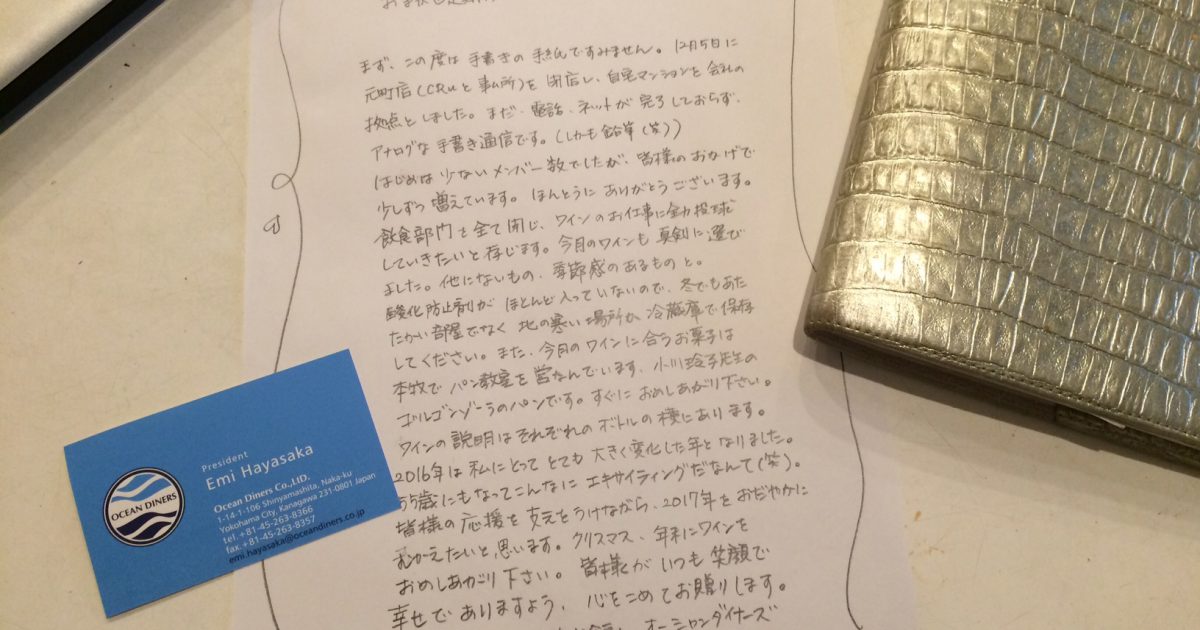 まず、この度は手書きの手紙ですみません。12月5日に
元町店(CRUと事ム所)を閉店し、自宅マンションを会社の
拠点としました。まだ、電話、ネットが完了しておらず、
アナログな手書き通信です。(しかも鉛筆(笑))
はじめは少ないメンバー数でしたが、皆様のおかげで
少しずつ増えています。ほんとうにありがとうございます。
飲食部門を全て閉じ、ワインのお仕事に全力投球
していきたいと存じます。今月のワインも真剣に選び
ました。他にないもの、季節感のあるものと。
酸化防止剤がほとんど入っていないので、冬でもあた
たかい部屋でなく地の寒い場所か冷蔵庫で保存
してください。また、今月のワインに合うお菓子は
本牧でパン教室を営なんでいます、小川玲子先生の
ゴルゴンゾーラのパンです。すぐにおめしあがり下さい。
ワインの説明はそれぞれのボトルの様にあります。
2016年は私にとってとても大きく変化した年となりました。
55歳にもなってこんなにエキサイティングだなんて(笑)。
皆様の応援を支えをうけながら、2017年をおだやかに
むかえたいと思います。クリスマス、年末にワインを
おめしあがり下さい。皆様がいつも笑顔で
幸せでありますよう、心をこめてお贈りします。
オーシャンダイナーズ
OCEAN DINERS
President
Emi Hayasaka
Ocean Diners Co.,LTD.
1-14-1-106 Shinyamashita, Naka-ku
Yokohama City, Kanagawa 231-0801 Japan
tel.+81-45-263-8366
fax.+81-45-263-8357
emi.hayasaka@oceandiners.co.jp